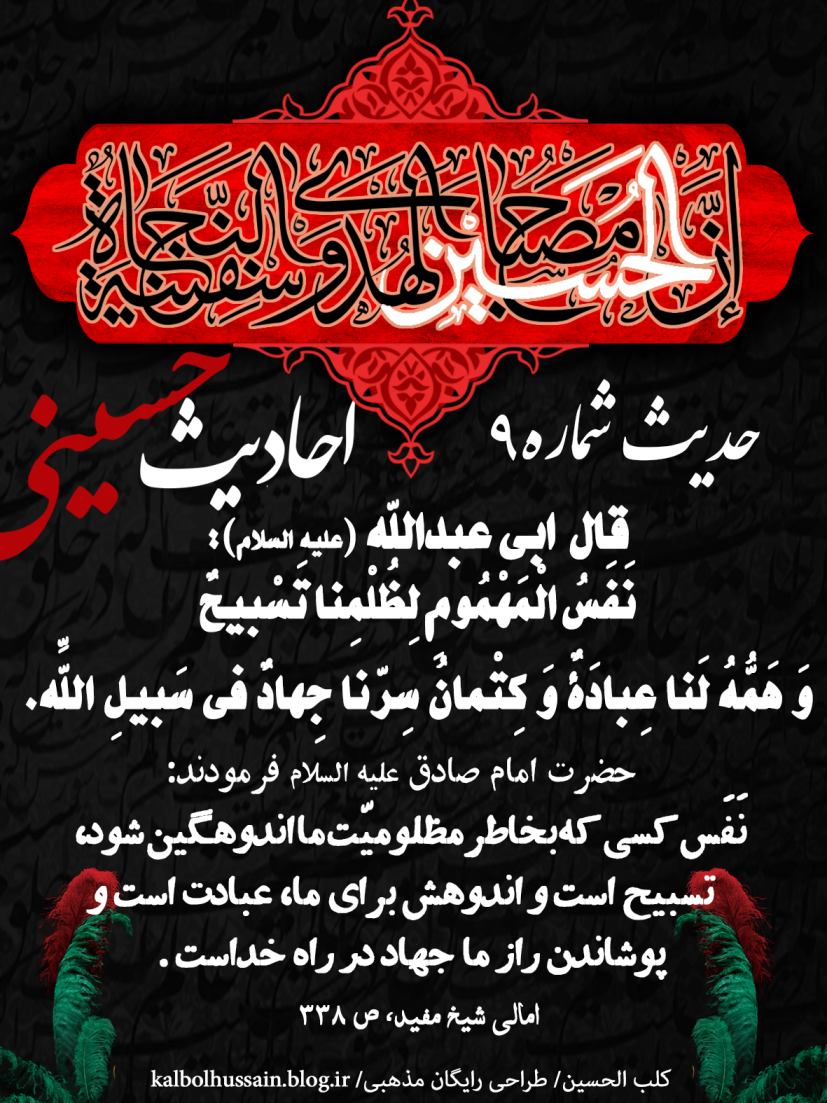 إنَّ الحُسین مِصباح الهُدی وسَفینَة النَّجاة
حدیث شماره ۹
احادیث حسینی
قال ابی عبدالله (علیه السلام):
نَفَسُ الْمَهْمُومِ لِظُلْمِنا تَسْبیحٌ
وَ هَمُّهُ لَنا عِبادَةٌ وَ کِتْمانُ سِرّنا جِهادٌ فی سَبیلِ اللَّهِ.
حضرت امام صادق علیه السلام فرمودند:
نَفَس کسی که بخاطر مظلومیّت ما اندوهگین شود،
تسبیح است و اندوهش برای ما، عبادت است و
پوشاندن راز ما جهاد در راه خداست.
امالی شیخ مفید، ص ۳۳۸
کلب الحسین/ طراحی رایگان مذهبی/ kalbolhussain.blog.ir